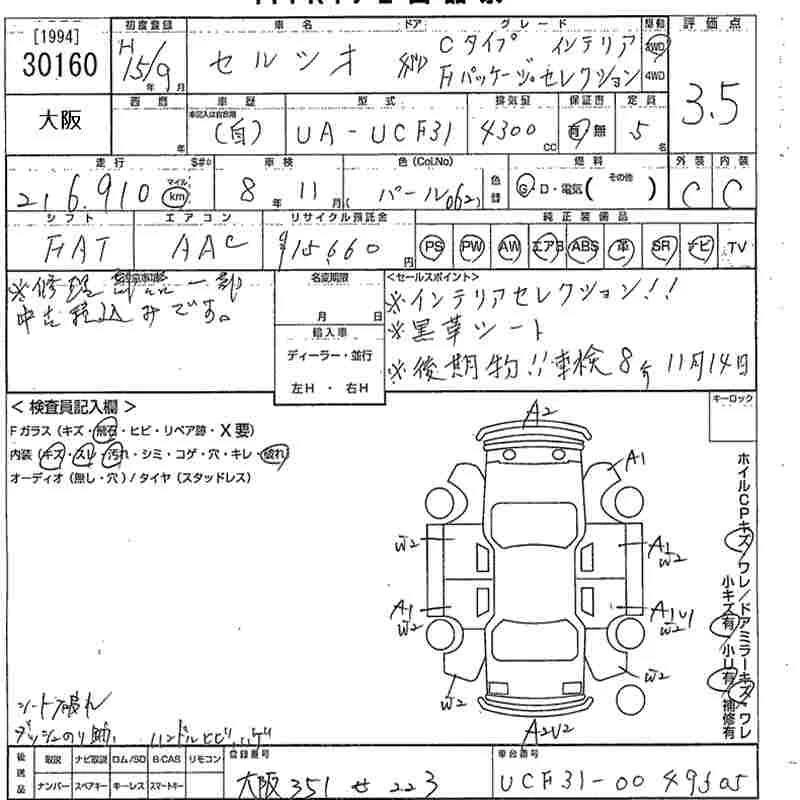 [1994]
30160
大阪
初度登録 車名 ドア グレード 駆動 評価点
H 15/9 年 月
セルシオ 4D
Cタイプ インテリア
Fパッケージ・セレクション
2WD
4WD
3.5
車歴 型式 排気量 保証書 定員
年 (自) UA-UCF31 4300 CC 有・無 5 名
走行 S#○ 車検 色(Col.No) 燃料 外装 内装
216.910 マイル km 8年 11月 パール(062) 色替 G・D・電気( その他 ) C C
シフト エアコン リサイクル預託金 純正装備品
FAT AAC ¥15660 円 PS PW AW エアB ABS 革 SR ナビ TV
※修理 部品一部
中古 込みです。
名変期限
月 日
輸入車
ディーラー・並行
左H・右H
<セールスポイント>
※インテリアセレクション!!
※黒革シート
※後期物!!車検8年11月14日
キーロック
<検査員記入欄>
Fガラス(キズ・飛石・ヒビ・リペア跡・X要)
内装(キズ・スレ・汚れ・シミ・コゲ・穴・キレ・破れ)
オーディオ(無し・穴)/タイヤ(スタッドレス)
A2
A1
W2
A1
W2
A1
W2
A1U1
W2
W2
W2
A2U2
ホイルCPキズ・ワレ/ドアミラーキズ・ワレ
小キズ有/小U有/補修有
シート破れ
ダッシュのり跡、ハンドルヒビ、ハゲ
後送品 取説 ナビ取説 ロム/SD B-CAS リモコン
ナンバー スペアキー キーレス スマートキー
登録番号
大阪 351 せ 223
車台番号
UCF31-0049505